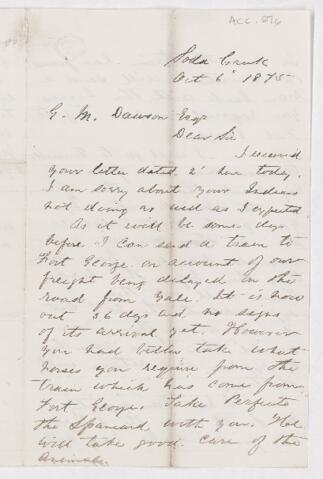 ACC. 826
Soda Creek
Oct 6th 1875
G. M. Dawson Esqr
Dear Sir
I received
your letter dated 2d here today.
I am sorry about your Indians
not doing as well as I expected
As it will be some days
before I can send a train to
Fort George on account of our
freight being delayed on the
road from Yale. It is now
out 36 days and no signs
of its arrival yet. However
you had better take what
horses you require from the
train which has come from
Fort George. Take Perfecto
the Spaniard with you. He
will take good care of the
animals